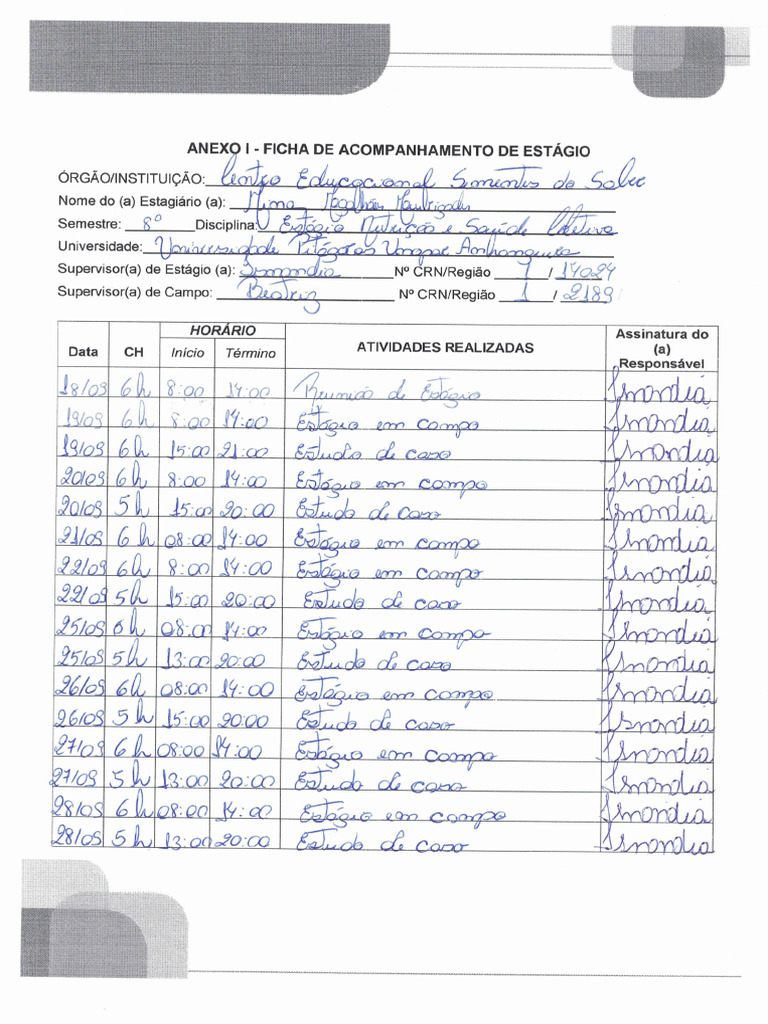 ANEXO I - FICHA DE ACOMPANHAMENTO DE ESTÁGIO
ÓRGÃO/INSTITUIÇÃO: Centro Educacional Sementes do Saber
Nome do (a) Estagiário (a): Magalhães
Semestre: 8º Disciplina: Estágio Nutrição e Saúde Coletiva
Universidade: Universidade Pitágoras Unopar Anhanguera
Supervisor(a) de Estágio (a): Ismandia Nº CRN/Região 7 / 14024
Supervisor(a) de Campo: Beatriz Nº CRN/Região 1 / 2189
Data CH HORÁRIO Início Término ATIVIDADES REALIZADAS Assinatura do (a) Responsável
18/09 6h 8:00 14:00 Reunião de Estágio
19/09 6h 8:00 14:00 Estágio em campo
19/09 6h 15:00 21:00 Estudo de caso
20/09 6h 8:00 14:00 Estágio em campo
20/09 5h 15:00 20:00 Estudo de caso
21/09 6h 08:00 14:00 Estágio em campo
22/09 6h 8:00 14:00 Estágio em campo
22/09 5h 15:00 20:00 Estudo de caso
25/09 6h 08:00 14:00 Estágio em campo
25/09 5h 13:00 20:00 Estudo de caso
26/09 6h 08:00 14:00 Estágio em campo
26/09 5h 15:00 20:00 Estudo de caso
27/09 6h 08:00 14:00 Estágio em campo
27/09 5h 13:00 20:00 Estudo de caso
28/09 6h 08:00 14:00 Estágio em campo
28/09 5h 13:00 20:00 Estudo de caso